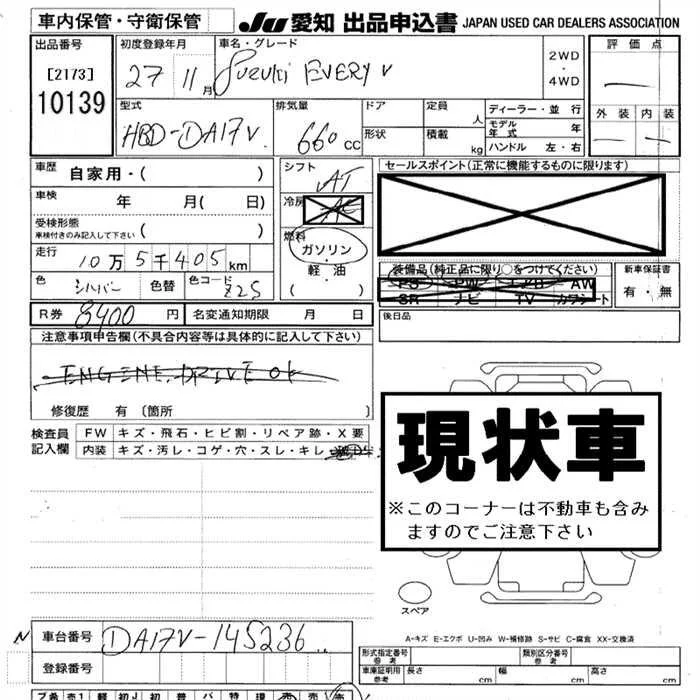 車内保管・守衛保管 JU 愛知 出品申込書 JAPAN USED CAR DEALERS ASSOCIATION
出品番号
[2173]
10139
初度登録年月 27 11月
車名・グレード Suzuki EVERY V
2WD
・
4WD
評価点
型式 HBD-DA17V
排気量 660 CC
ドア
形状
定員 人
積載 kg
ディーラー・並行
モデル年式 年
ハンドル 左・右
外装 内装
車歴 自家用・( )
車検 年 月( 日)
受検形態
車検付きのみ記入して下さい ( )
走行 10万5千405km
色 シルバー 色替 色コード Z2S
シフト AT
冷房 AC
燃料
ガソリン
・
軽油
( )
セールスポイント(正常に機能するものに限ります)
装備品(純正品に限り○をつけてください)
PS PW エアB AW
SR ナビ TV カワシート
新車保証書
有・無
R券 8400 円 名変通知期限 月 日
後日品
注意事項申告欄(不具合内容等は具体的に記入して下さい)
ENGINE. DRIVE OK
修復歴 有 〔箇所 〕
検査員
記入欄
FW キズ・飛石・ヒビ割・リペア跡・X要
内装 キズ・汚レ・コゲ・穴・スレ・キレ
現状車
※このコーナーは不動車も含み
ますのでご注意下さい
スペア
A-キズ E-エクボ U-凹み W-補修跡 S-サビ C-腐食 XX-交換済
N 車台番号 ① DA17V-145236
登録番号
形式指定番号
参考
類別区分番号
参考
車庫証明用
参考
長さ cm 幅 cm 高さ cm